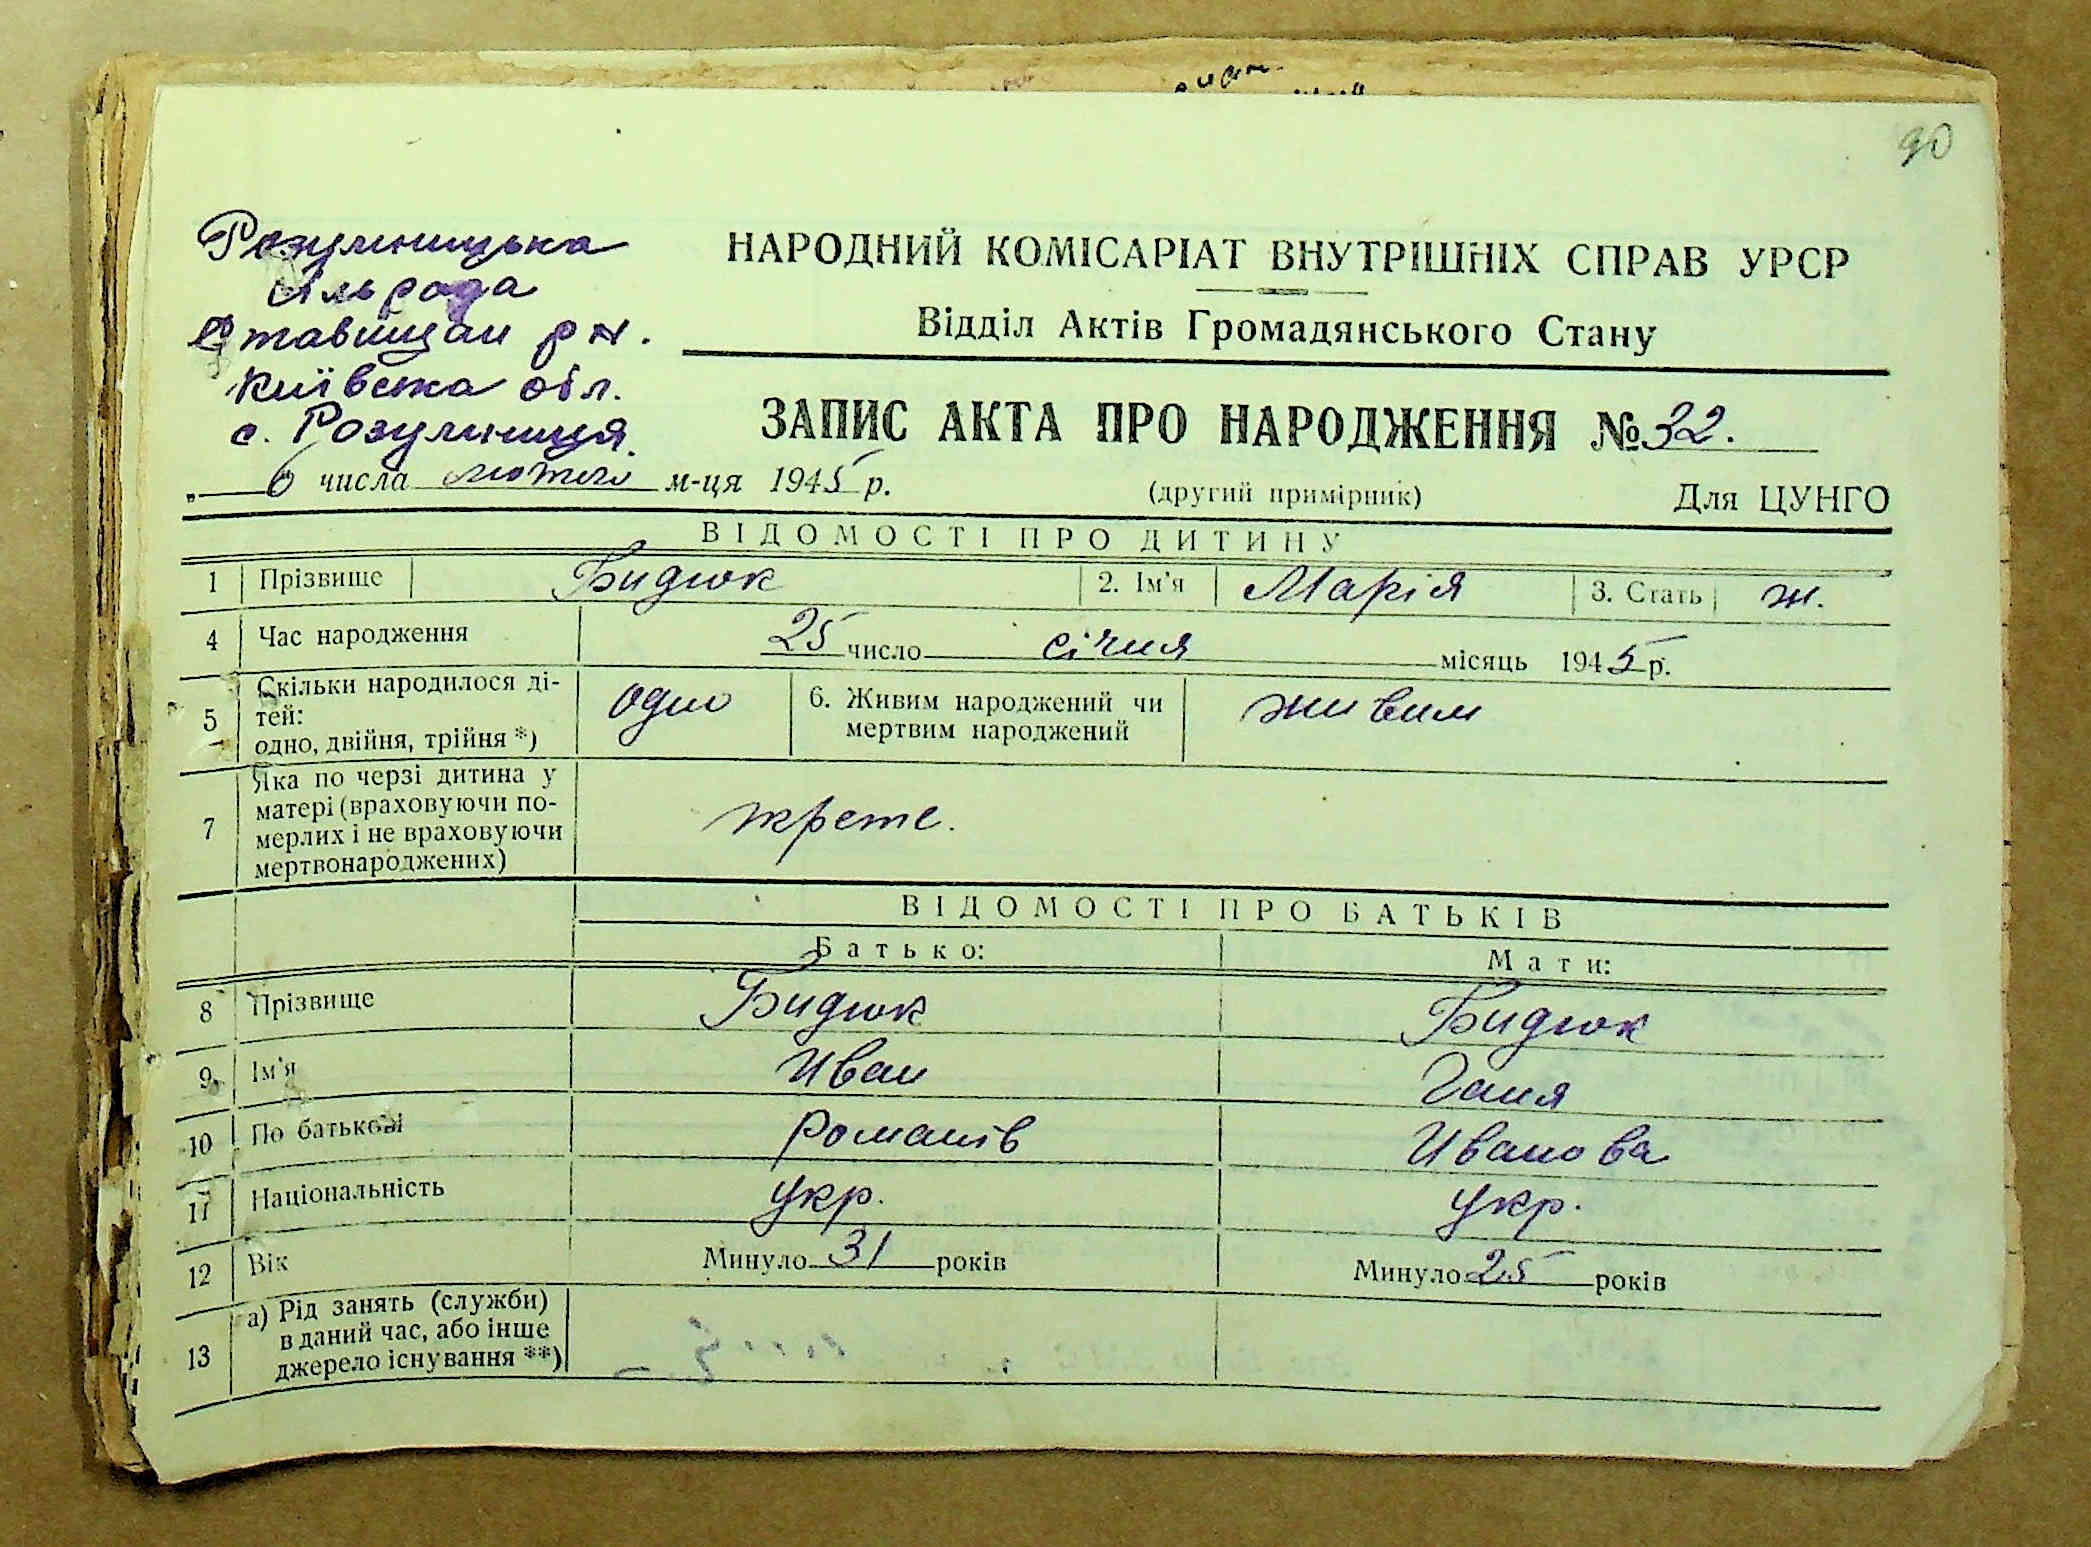 90
Розумницька
сільрада
Ставищан рн.
Київська обл.
с. Розумниця
НАРОДНИЙ КОМІСАРІАТ ВНУТРІШНІХ СПРАВ УРСР
Відділ Актів Громадянського Стану
ЗАПИС АКТА ПРО НАРОДЖЕННЯ № 32.
„ 6 числа лютого м-ця 1945 р.
(другий примірник)
Для ЦУНГО
ВІДОМОСТІ ПРО ДИТИНУ
1 Прізвище Бидюк 2. Ім'я Марія 3. Стать ж.
4 Час народження 25 число січня місяць 1945 р.
5 Скільки народилося ді-
тей:
одно, двійня, трійня *) одно 6. Живим народжений чи
мертвим народжений живим
7 Яка по черзі дитина у
матері (враховуючи по-
мерлих і не враховуючи
мертвонароджених) трете.
ВІДОМОСТІ ПРО БАТЬКІВ
Батько: Мати:
8 Прізвище Бидюк Бидюк
9 Ім'я Иван Ганя
10 По батькові Романів Иванова
11 Національність укр. укр.
12 Вік Минуло 31 років Минуло 25 років
13 а) Рід занять (служби)
в даний час, або інше
джерело існування **)